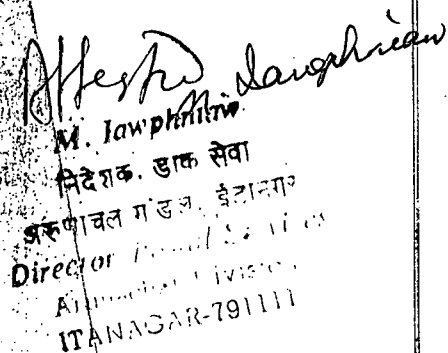 Attested
M. Iawphniaw
M. Iawphniaw
निदेशक, डाक सेवा
अरुणाचल मंडल, ईटानगर
Director Postal Services
Arunachal Division
ITANAGAR-791111